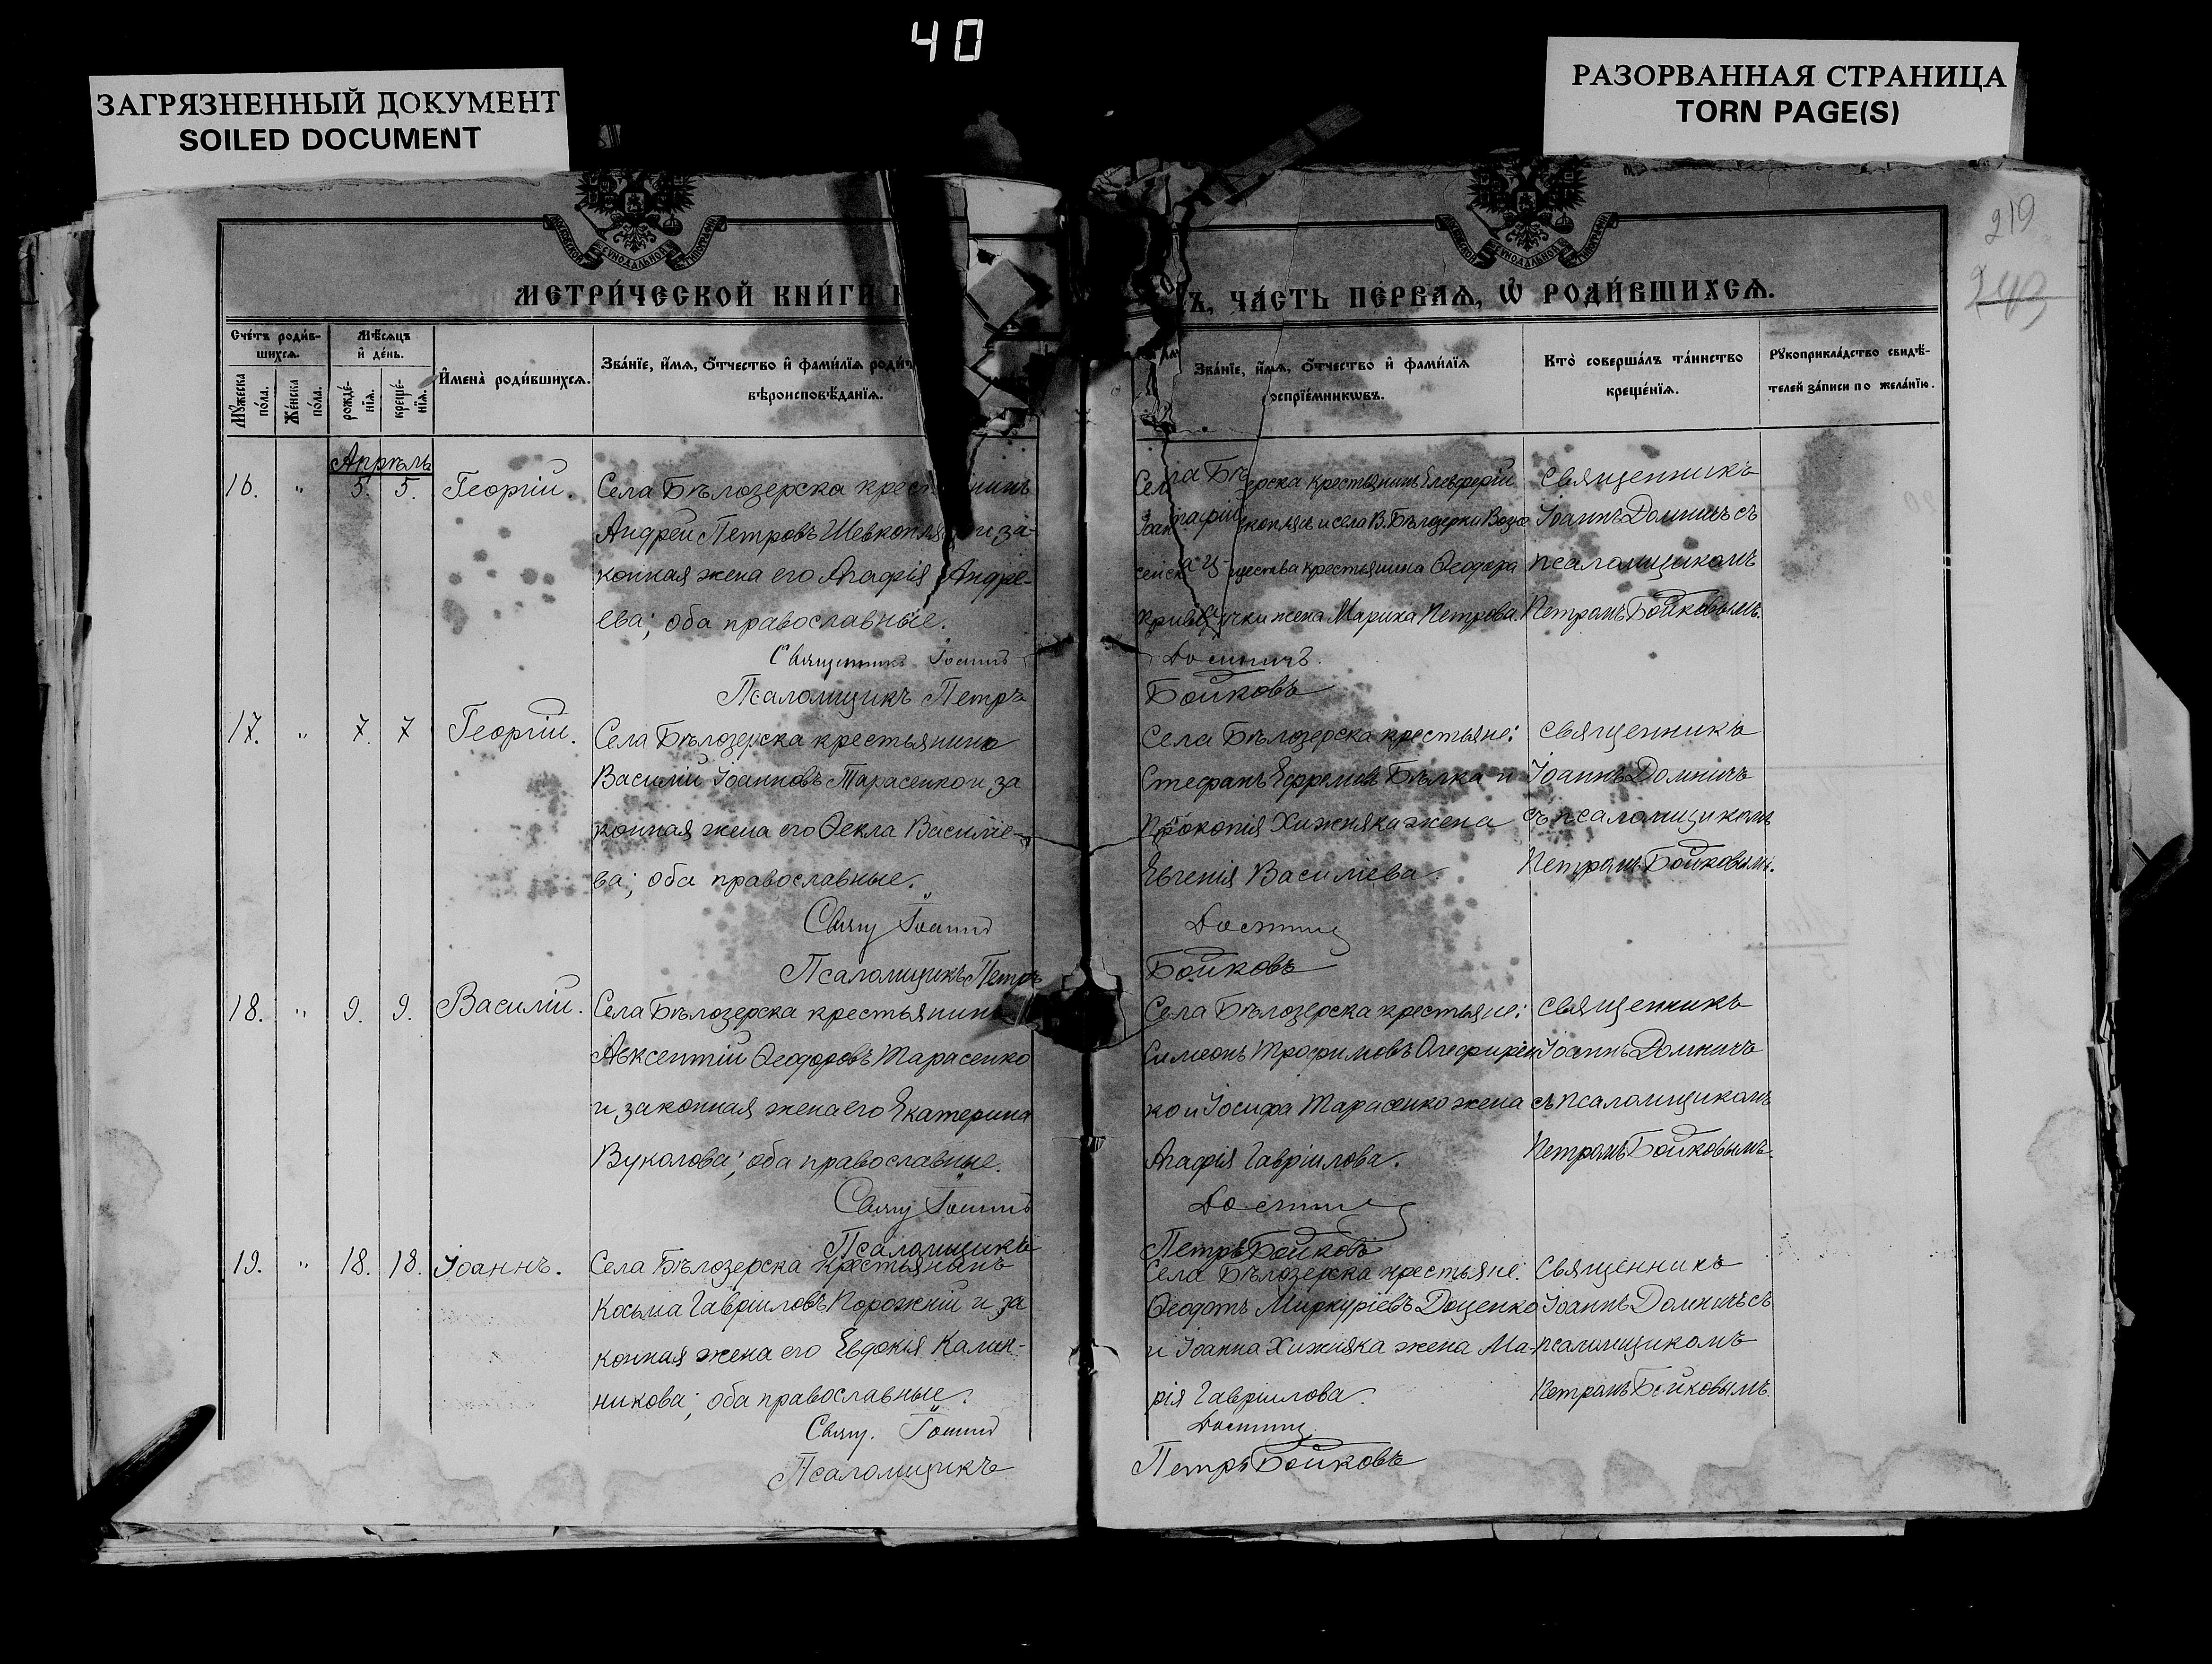 40
ЗАГРЯЗНЕННЫЙ ДОКУМЕНТ
SOILED DOCUMENT
РАЗОРВАННАЯ СТРАНИЦА
TORN PAGE(S)
219
МОСКОВСКОЙ СѴНОДАЛЬНОЙ ТИПОГРАФІИ
МОСКОВСКОЙ СѴНОДАЛЬНОЙ ТИПОГРАФІИ
МЕТРИ́ЧЕСКОЙ КНИ́ГИ
Ъ, ЧА́СТЬ ПЕ́РВАѦ, Ѽ РОДИ́ВШИХСѦ.
Сче́тъ роди́в-
шихсѧ.
Мѣ́сѧцъ
и҆ де́нь.
И҆мена̀ роди́вшихсѧ.
Зва́нїе, и҆́мѧ, ѻ҆́тчество и҆ фами́лїѧ роди́
вѣроисповѣ́данїѧ.
Зва́нїе, и҆́мѧ, ѻ҆́тчество и҆ фами́лїѧ
оспрїе́мникѡвъ.
Кто̀ соверша́лъ та́инство
креще́нїѧ.
Рꙋкоприкла́дство свидѣ́-
телей за́писи по жела́нїю.
Мꙋ́жеска по́ла.
Же́нска по́ла.
рожде́нїѧ.
креще́нїѧ.
Апрѣль
16. " 5. 5. Георгій. Села Бѣлозерска крест нинъ
Андрей Петровъ Шевкопля и за-
конная жена его Агафія Андре-
ева; оба православные.
Священникъ Іоаннъ
Псаломщикъ Петръ
ерска крестьянинъ Елевферій
копляс и села В. Бѣлозерки Возне
сенск щества крестьянина Ѳеодора
Кривручки жена Марина Петрова.
Домничъ.
Бойковъ
Священникъ
Іоаннъ Домничъ съ
псаломщикомъ
Петромъ Бойковымъ.
17. " 7. 7 Георгій. Села Бѣлозерска крестьянинъ
Василій Іоанновъ Тарасенко и за
конная жена его Ѳекла Василіе-
ва; оба православные.
Свящ Іоаннъ
Псаломщикъ Петръ
Села Бѣлозерска крестьяне:
Стефанъ Ефремовъ Бѣлка и
Прокопія Хижняка жена
Евгенія Василіева
Домнич
Бойковъ
Священникъ
Іоаннъ Домничъ
съ псаломщикомъ
Петромъ Бойковымъ.
18. " 9. 9. Василій. Села Бѣлозерска крестьянинъ
Авксентій Ѳеодоровъ Тарасенко
и законная жена его Екатерина
Вуколова; оба православные.
Свящ Іоаннъ
Псаломщикъ
Села Бѣлозерска крестьяне:
Симеонъ Трофимовъ Онофрiен
ко и Іосифа Тарасенко жена
Агафія Гавріилова.
Домнич
Петръ Бойковъ
Священникъ
Іоаннъ Домничъ
съ псаломщикомъ
Петромъ Бойковымъ.
19. " 18. 18. Іоаннъ. Села Бѣлозерска крестьянинъ
Косьма Гавріиловъ Порожній и за
конная жена его Евдокія Калин-
никова; оба православные.
Свящ. Іоаннъ
Псаломщикъ
Села Бѣлозерска крестьяне:
Ѳеодотъ Меркуріевъ Доценко
и Іоанна Хижняка жена Ма-
рія Гавріилова.
Домнич.
Петръ Бойковъ
Священникъ
Іоаннъ Домничъ съ
псаломщикомъ
Петромъ Бойковымъ.